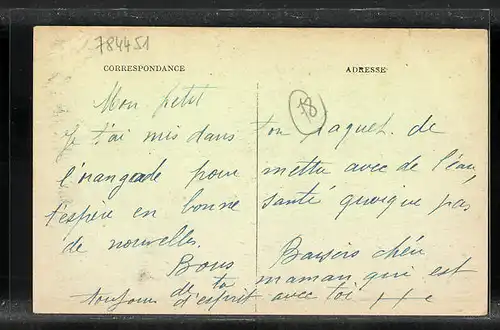 784451
CORRESPONDANCE ADRESSE
78
Mon petit
Je t'ai mis dans ton paquet de
l'orangeade pour mettre avec de l'eau,
t'espère en bonne santé quoique pas
de nouvelles. Baisers chéri
Bons maman qui est
toujours d'esprit avec toi
de ta